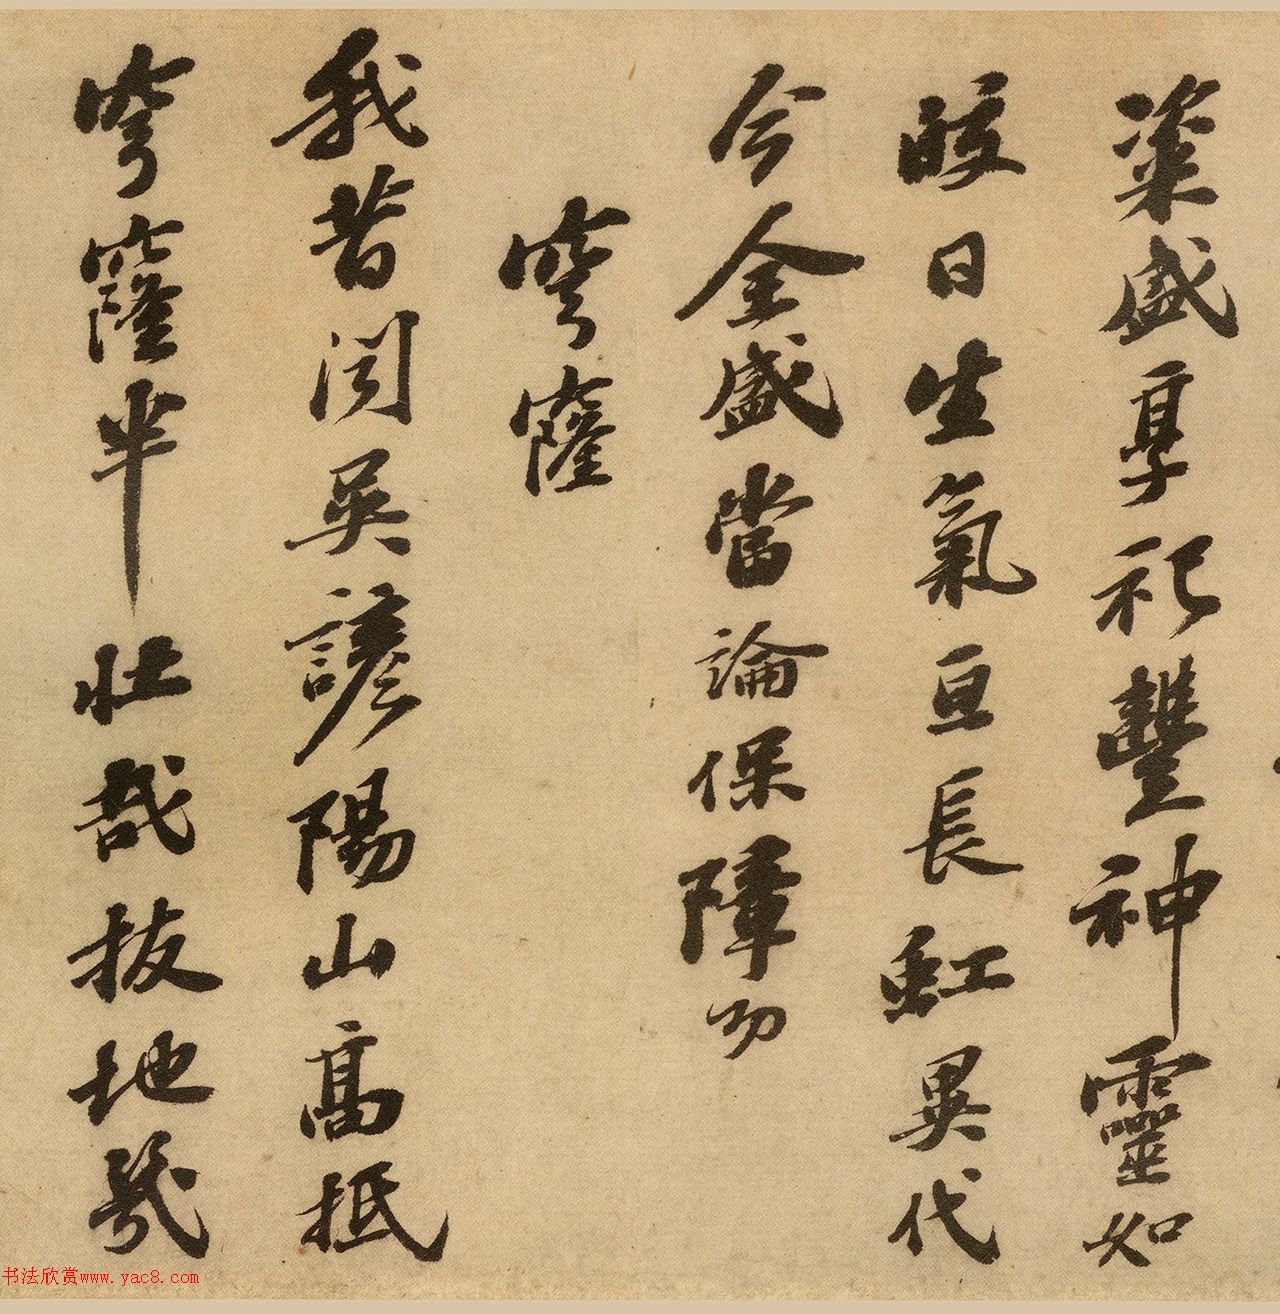 粢盛享祀豐神靈如
皎日生氣亘長虹異代
今全盛當論保障功
穹窿
我昔聞吳諺陽山高抵
穹窿半壯哉拔地幾
书法欣赏www.yac8.com